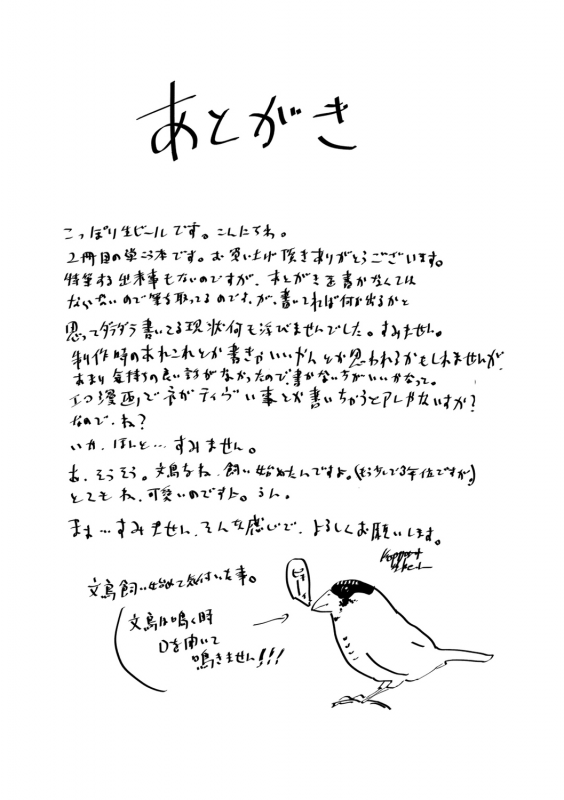 あとがき
こっぽり生ビールです。こんにちわ。
2冊目の単行本です。お買い上げ頂きありがとうございます。
特筆する出来事もないのですが、あとがきを書かなくては
ならないので筆を取ってるのですが、書いてれば何か出るかと
思ってダラダラ書いてる現状何も浮びませんでした。すみません。
制作時のあれこれとか書きゃいいやんとか思われるかもしれませんが、
あまり気持ちの良い話がなかったので、書かない方がいいかなって。
エロ漫画でネガティヴい事とか書いちゃうとアレじゃないすか?
なので、ね?
いや、ほんと…すみません。
あ、そうそう。文鳥をね、飼い始めたんですよ。(もう少しで3年位ですが)
とてもね、可愛いのですよ。うん。
まぁ…すみません、そんな感じで、よろしくお願いします。
文鳥飼い始めて気付いた事。
ピィーッ
文鳥は鳴く時
口を開いて
鳴きません!!!